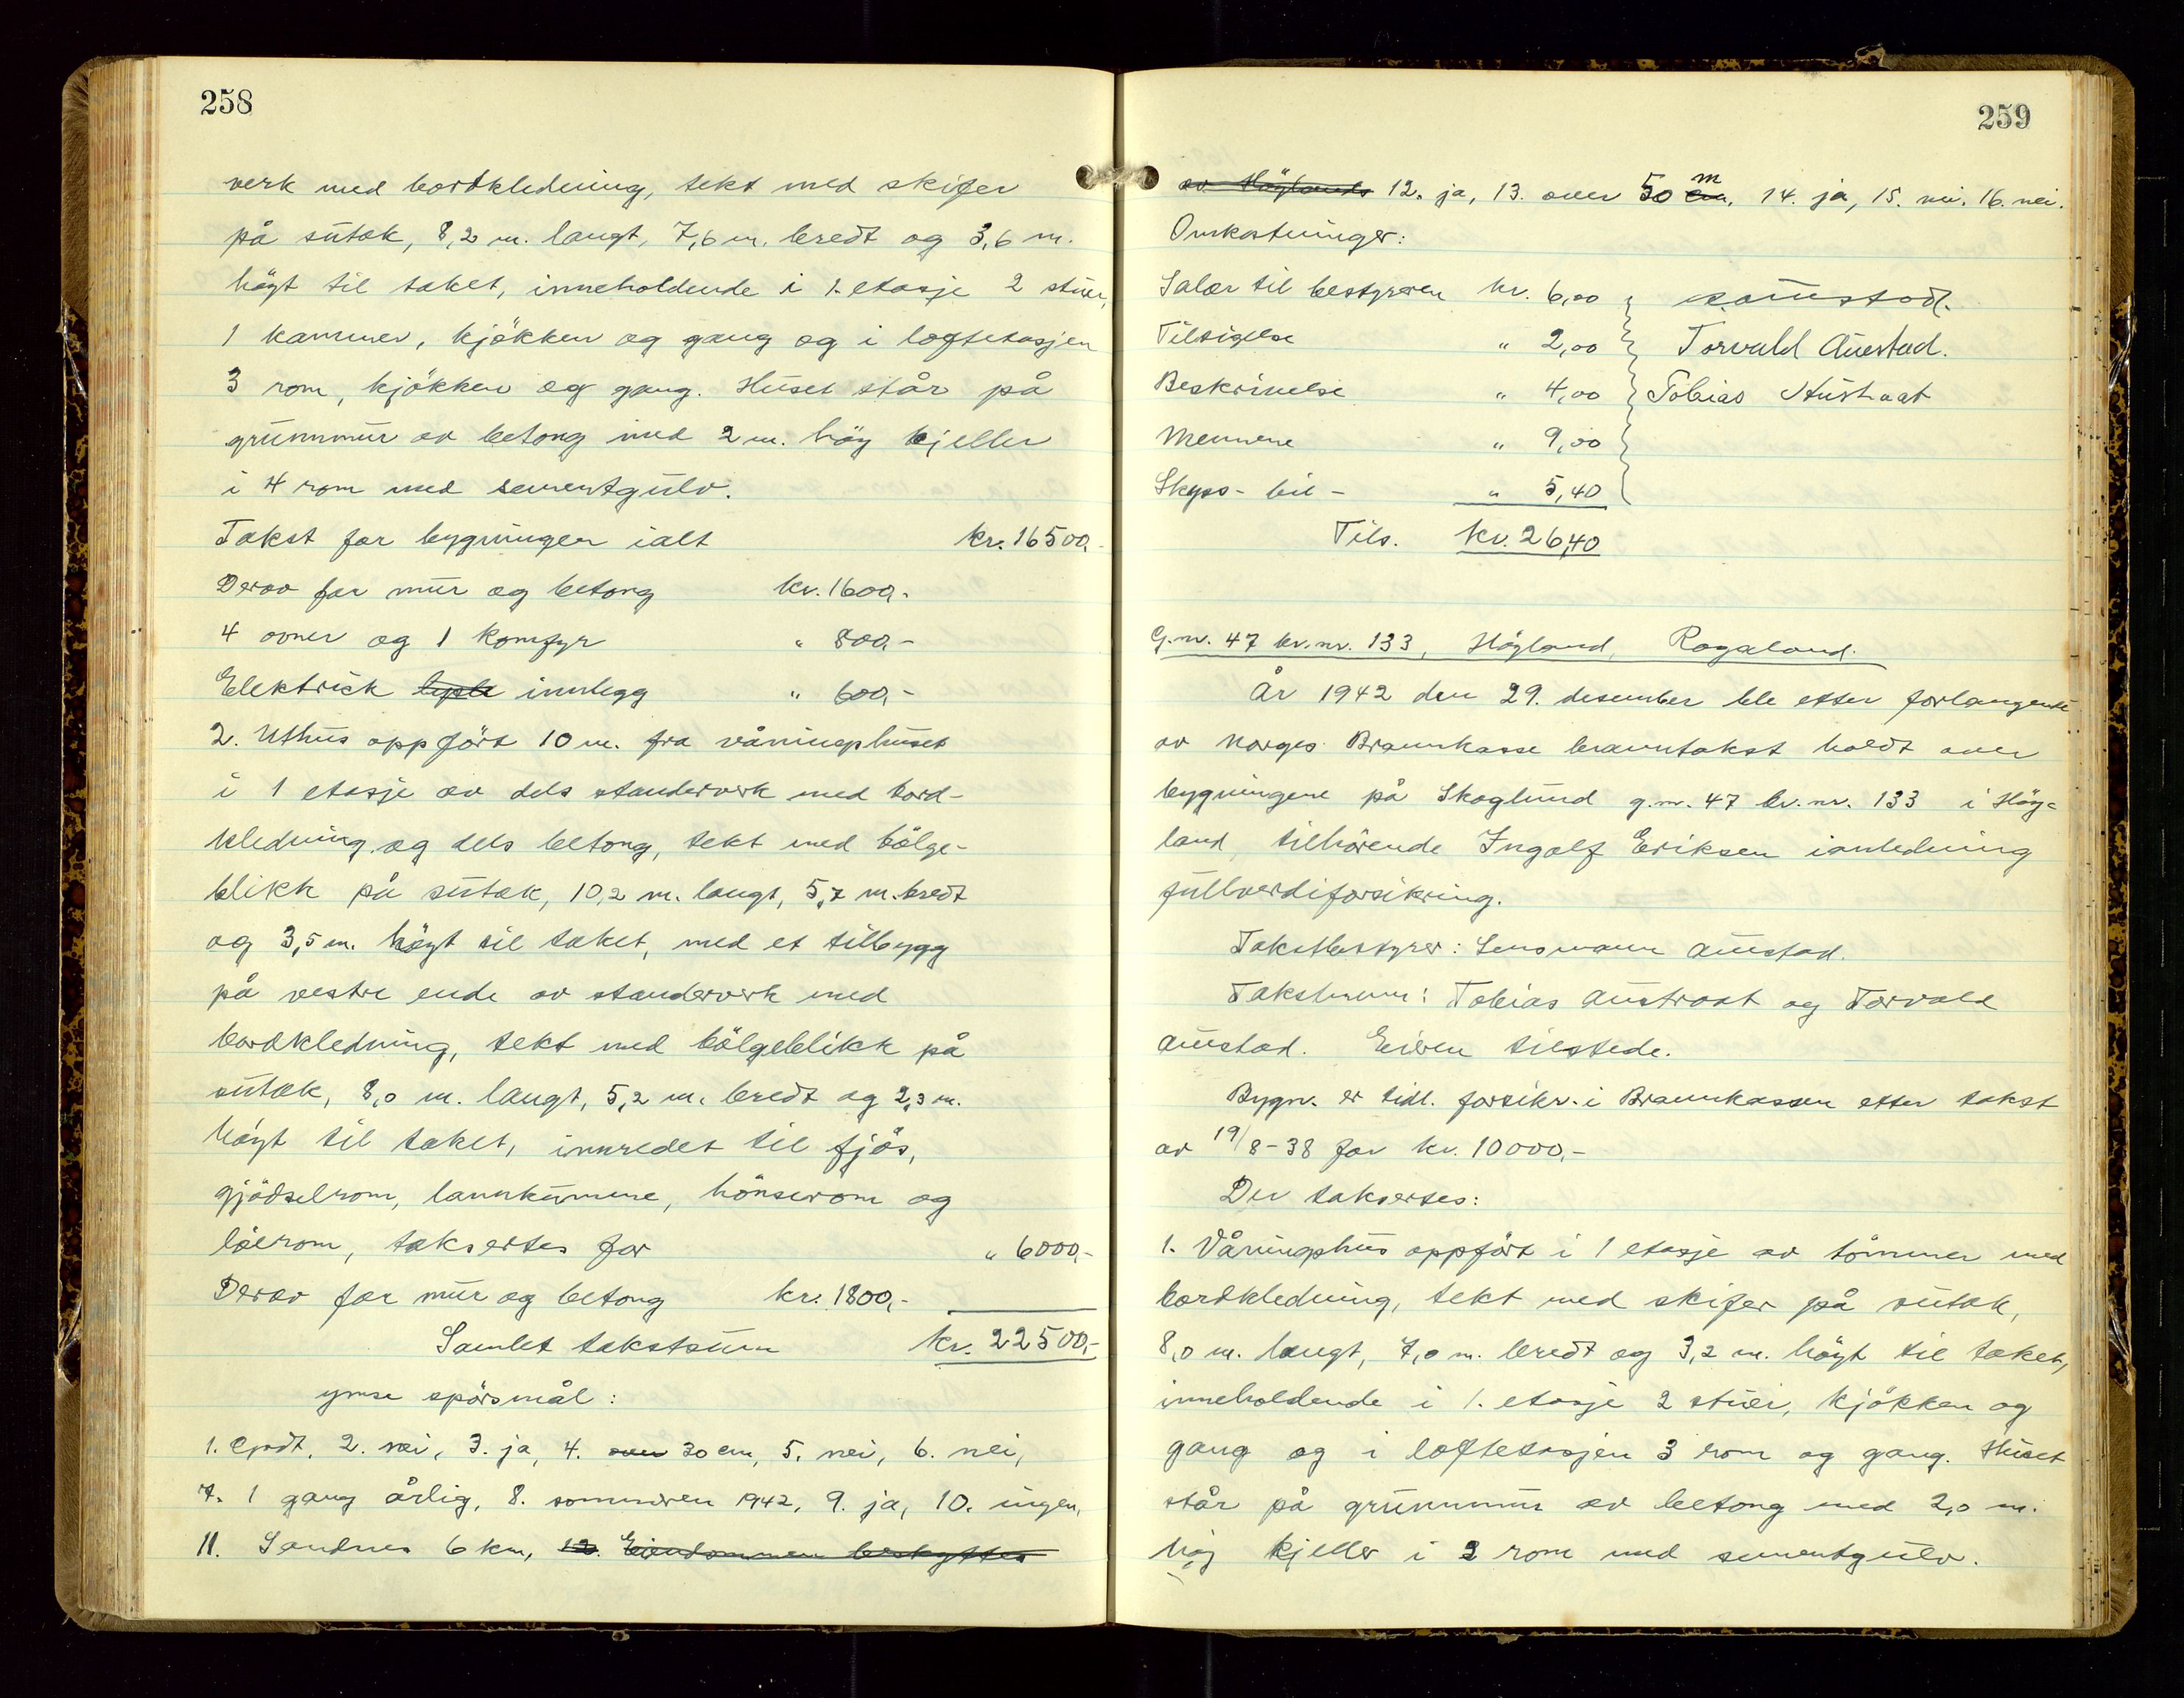 258
verk med bordkledning, tekt med skifer
på sutak, 8,2 m. langt, 7,6 m. bredt og 3,6 m.
högt til taket, inneholdende i 1. etasje 2 stuer,
1 kammer, kjökken og gang og i loftetasjen
3 rom, kjökken og gang. Huset står på
grunnmur av betong med 2 m. höy kjeller
i 4 rom med sementgulv.
Takst for bygningen ialt kr. 16500,-
Derav for mur og betong kr. 1600,-
4 ovner og 1 komfyr " 800,-
Elektrick innlegg " 600,-
2. Uthus oppfört 10 m. fra våningshuset
i 1 etasje av dels standerverk med bord-
kledning og dels betong, tekt med bölge-
blikk på sutak, 10,2 m. langt, 5,7 m. bredt
og 3,5 m. högt til taket, med et tilbygg
på vestre ende av standerverk med
bordkledning, tekt med bölgeblikk på
sutak, 8,0 m. langt, 5,2 m. bredt og 2,3 m.
högt til taket, innredet til fjös,
gjödselrom, lannkumme, hönserom og
löerom, taksertes for " 6000,-
Derav for mur og betong kr. 1800,-
Samlet takstsum kr. 22500,-
ymse spörsmål:
1. Godt, 2. nei, 3. ja, 4. over 30 cm, 5. nei, 6. nei,
7. 1 gang årlig, 8. sommeren 1942, 9. ja, 10. ingen,
11. Sandnes 6 km, 12. Eiendommen beskyttes
259
av Höylands 12. ja, 13. over 50 cm m. 14. ja, 15. nei. 16. nei.
Omkostninger:
Salær til bestyreren kr. 6,00 Aunestad.
Tilsigelse " 2,00 Torvald Auestad.
Beskrivelse " 4,00 Tobias Austraat
Mennene " 9,00
Skyss - bil - " 5,40
Tils. kr. 26,40
G.nr. 47 br.nr. 133, Höyland, Rogaland.
År 1942 den 29. desember ble etter forlangende
av Norges Brannkasse branntakst holdt over
bygningene på Skoglund g.nr. 47 br.nr. 133 i Höy-
land, tilhörende Ingolf Eriksen i anledning
fullverdiforsikring.
Takstbestyrer: Lensmann Aunestad.
Takstmenn: Tobias Austraat og Torvald
Auestad. Eieren tilstede.
Bygn. er tidl. forsikr. i Brannkassen etter takst
av 19/8-38 for kr. 10000,-
Der taksertes:
1. Våningshus oppfört i 1 etasje av tömmer med
bordkledning, tekt med skifer på sutak,
8,0 m. langt, 7,0 m. bredt og 3,2 m. högt til taket,
inneholdende i 1. etasje 2 stuer, kjökken og
gang og i loftetasjen 3 rom og gang. Huset
står på grunnmur av betong med 2,0 m.
höy kjeller i 2 rom med sementgulv.